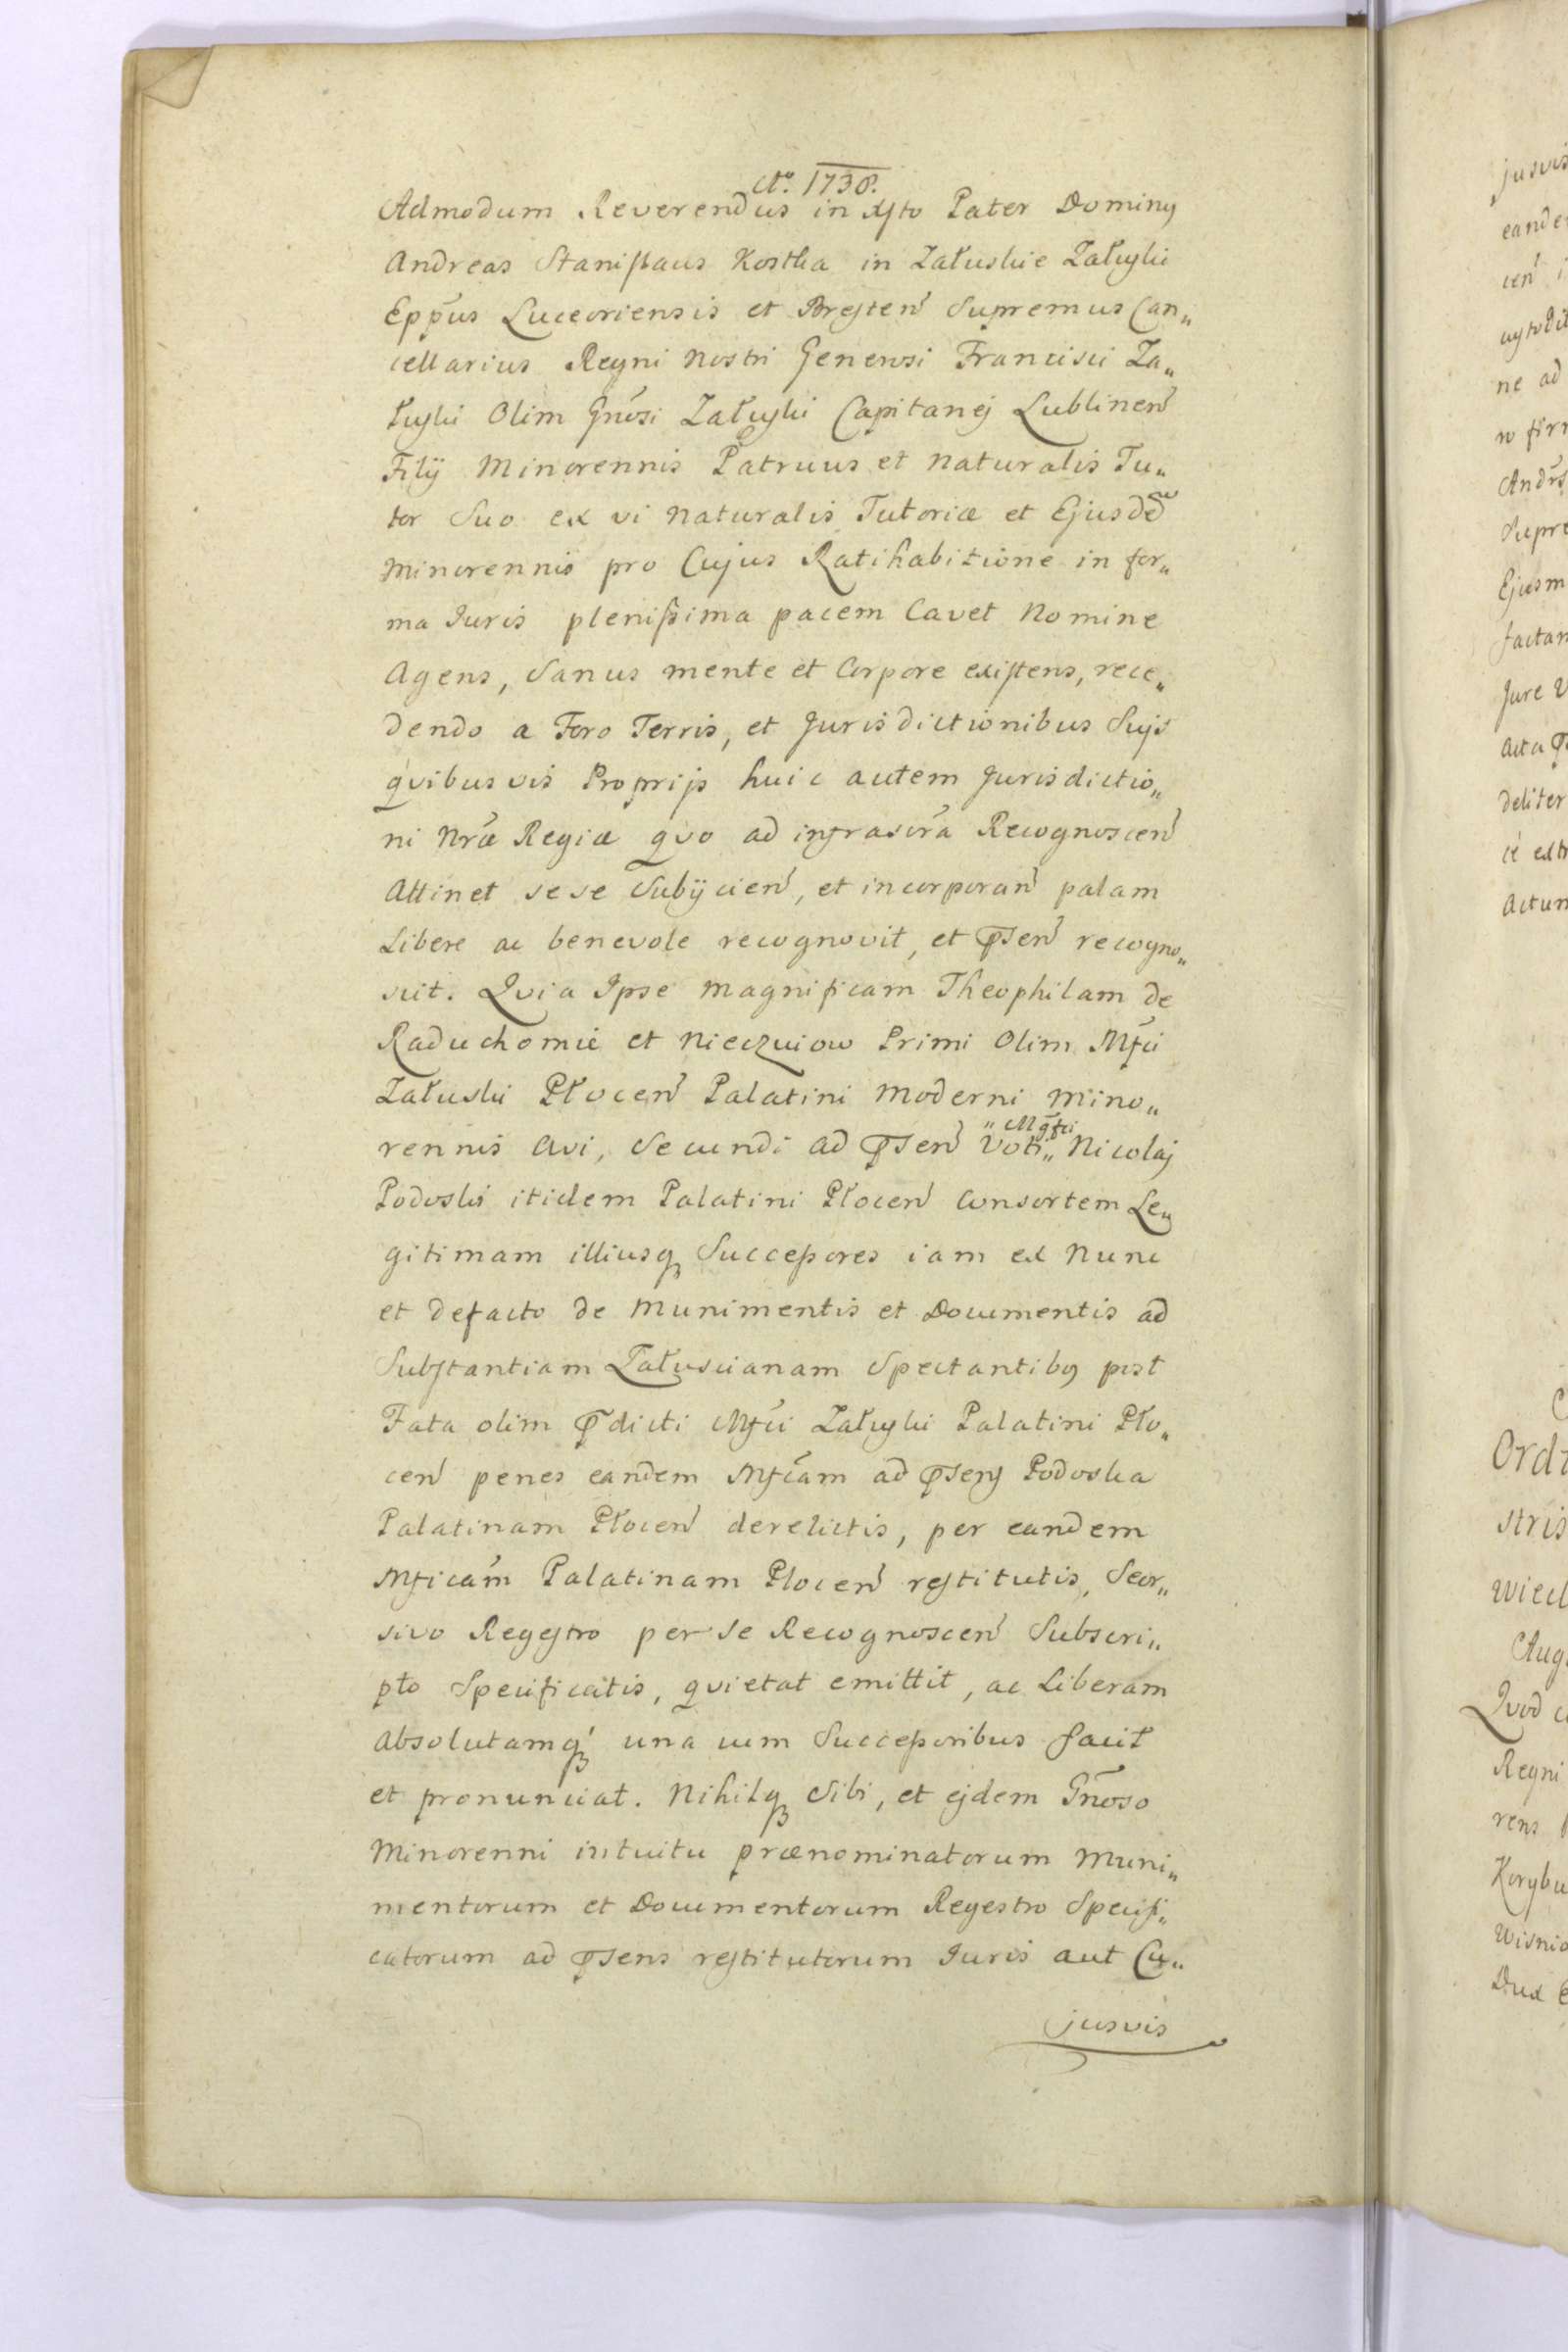 Aº. 1738.
Admodum Reverendus in Xsto Pater Dominus
Andreas Stanislaus Kostka in Załuskie Załuski
Eppũs Luceoriensis et Bresteñ Supremus Can„
cellarius Regni Nostri Generosi Francisci Za„
łuski Olim Gnõsi Załuski Capitanej Lublineñ
Filij Minorennis Patruus et Naturalis Tu„
tor Suo ex vi Naturalis Tutoriæ et Ejusdẽ
Minorennis pro Cujus Ratihabitione in for„
ma Juris plenissima pacem Cavet Nomine
Agens, Sanus mente et Corpore existens, rece„
dendo a Foro Terris, et Jurisdictionibus Suis
qvibusvis Proprijs huic autem Jurisdictio„
ni Nræ̃ Regiæ qvo ad infrascr̃a Recognosceñ
Attinet sese Subijcieñ, et incorporañ palam
Libere ac benevole recognovit, et p̃señ recogno„
scit. Qvia Ipse Magnificam Theophilam de
Raduchomie et Nieczuiow Primi Olim Mfci
Załuski Płoceñ Palatini Moderni Mino„
rennis Avi, Secundi ad p̃señ Voti „Mgfci„ Nicolaj
Podoski itidem Palatini Płoceñ Consortem Le„
gitimam illiusq; Successores iam ex Nunc
et defacto de Munimentis et Documentis ad
Substantiam Załuscianam Spectantibus post
Fata olim p̃dicti Mfci Załuski Palatini Pło„
ceñ penes eandem Mfcam ad p̃sens Podoska
Palatinam Płoceñ derelictis, per eandem
Mficam Palatinam Ploceñ restitutis, Seor„
sivo Regestro per se Recognosceñ Subscri„
pto Specificatis, qvietat emittit, ac Liberam
Absolutamq; una cum Successoribus facit
et pronunciat. Nihilq; Sibi, et ejdem Gnõso
Minorenni intuitu prænominatorum Muni„
mentorum et Documentorum Regestro Specifi„
catorum ad p̃sens restitutorum Juris aut Cu„
jusvis